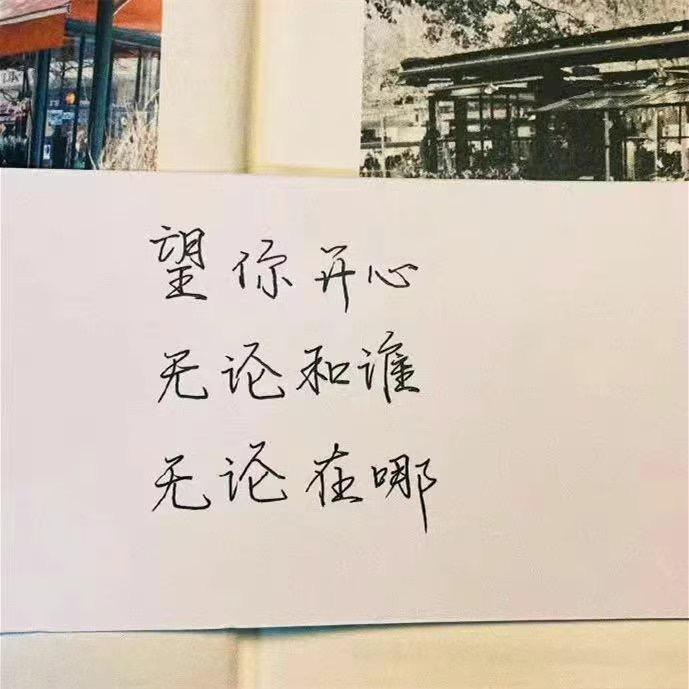 望你开心
无论和谁
无论在哪